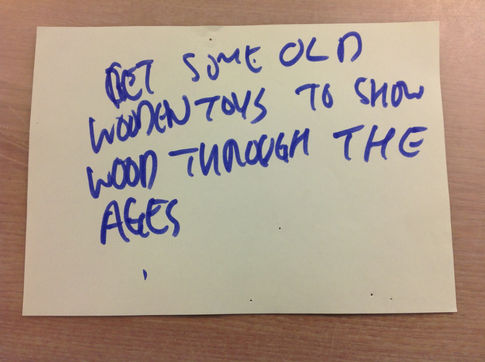 GET SOME OLD
WOODEN TOYS TO SHOW
WOOD THROUGH THE
AGES